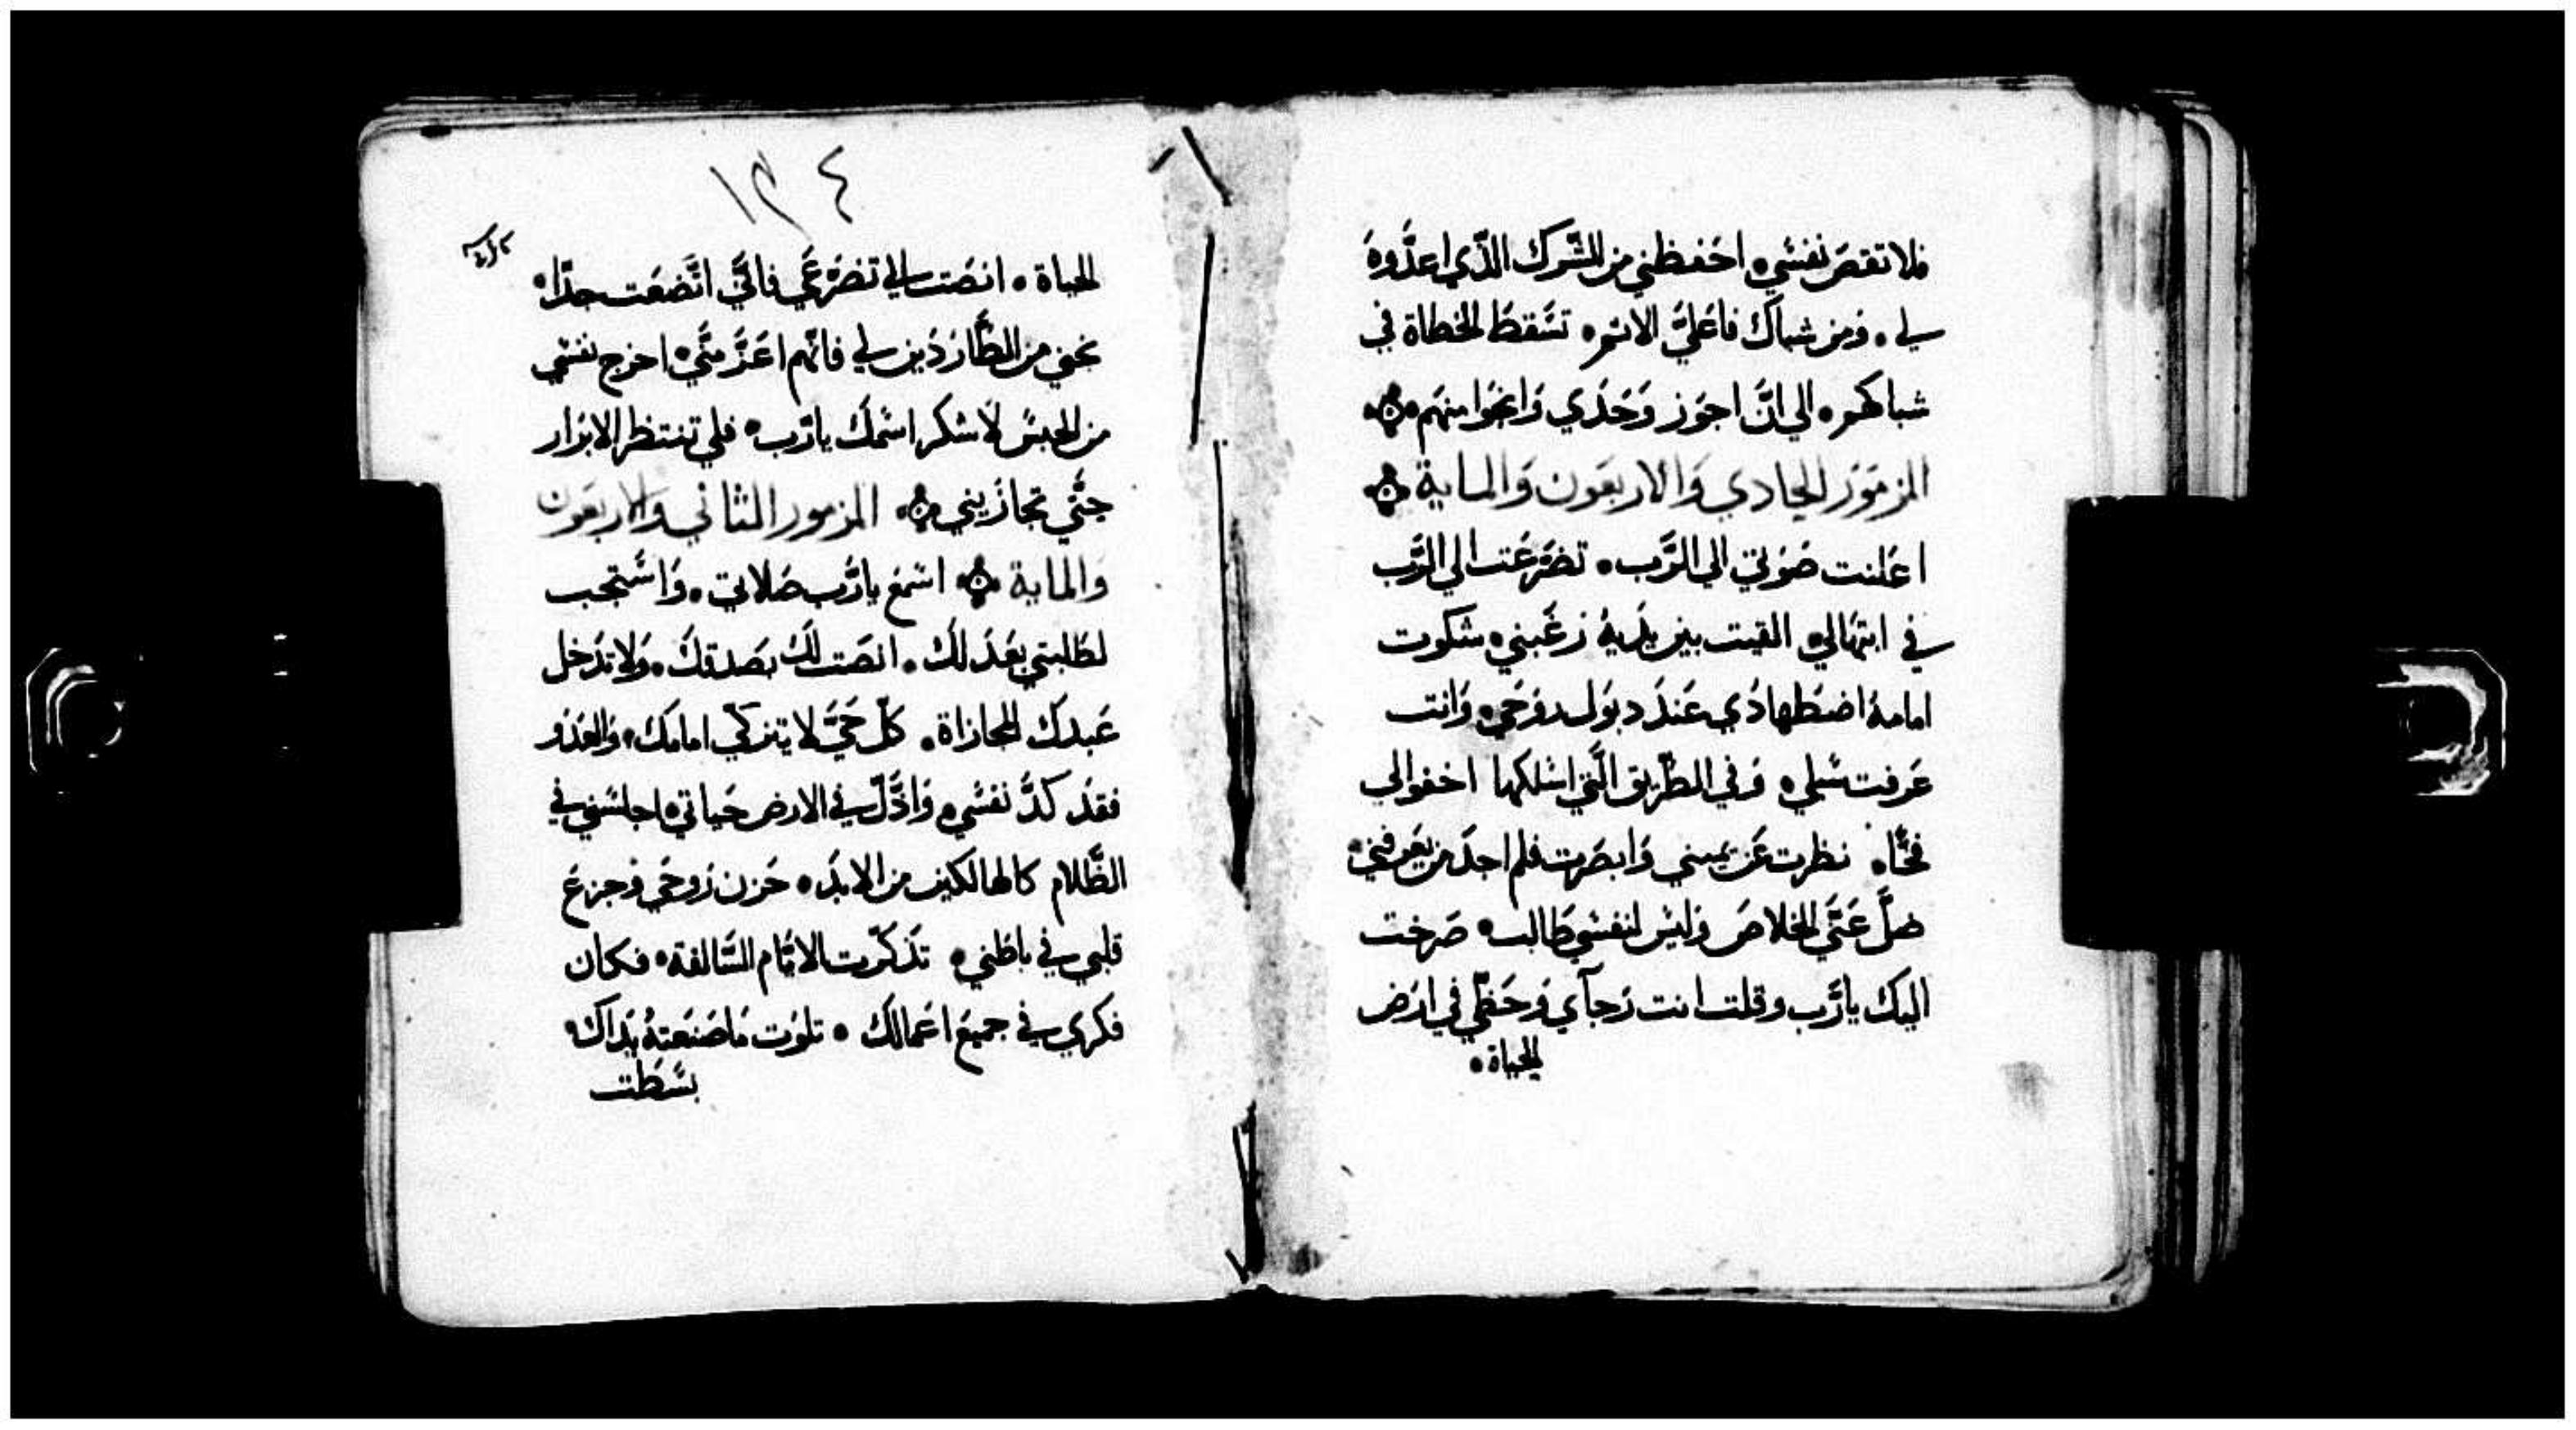 فلا تقصَ نفسَي • احَفظني من الشَّرك الذّي اعدَّوهَ
لي • ومن شباك فاعَليَّ الاثم • تسَقطَ الخطاة في
شباكهم • الي انَّ اجوَز وَحَدَي وَانجَوا منهَم •
المزموَر الحادي وَالاربعَون وَالماية
اعَلنت صَوَتي الي الرَّب • تضَرعَت الي الرَّب
في ابتهَالي • القيت بين يدَيهُ رَغَبني • شكوت
امامهُ اضطهادَي عَندَ دبوَل روَحَي • وَانت
عَرفت سَبلي • وَفي الطَّريق الَّتي اسَلكها اخفوا لي
فخَّاً • نظرت عَن يميني وَابصَرت فلم اجدَ من يعَرفني •
ضلَّ عَنَّي الخلاصَ وَليسَ لنفسَي طَالب • صَرخت
اليك يارَّب وقلت انت رَجآي وَحَظّي في ارَض
الحياة •
١٣٤
الحياة • انصَت الي تضرَّعَي فانَّي اتَّضَعَت جدَّا •
نجني من الطَّارَدَين لي فانَّهم اعَتزَّ منَّي • اخرج نفسَي
من الحبسَ لاَشكر اسَمكَ يارَّب • فلي تنتظر الابرَار
حتَّي تجازَيني • المزمور الثاني وَالاربعَون
وَالماية اسَمعَ يارَّب صَلاتي • وَاسَتجب
لطَلبتي بعَدَلك • انصَت لكَ بصَدقكَ • وَلا تدَخل
عَبدكَ المجازاة • كلّ حَيَّ لا يتزكّي امامكَ • وَالعَدَو
فقدَ كدَّ نفسَي • وَاذَّلّ في الارض حَياتي • اجلسَني في
الظَّلام كالهالكين من الابدَ • حَزن رَوحَي وَجزعَ
قلبي في باطَني • تذَكرّت الايَّام السَّالفة • فكان
فكري في جميعَ اعَمالكَ • تلوَت مَا صَنعَتهُ يدَاك •
بسَطَت